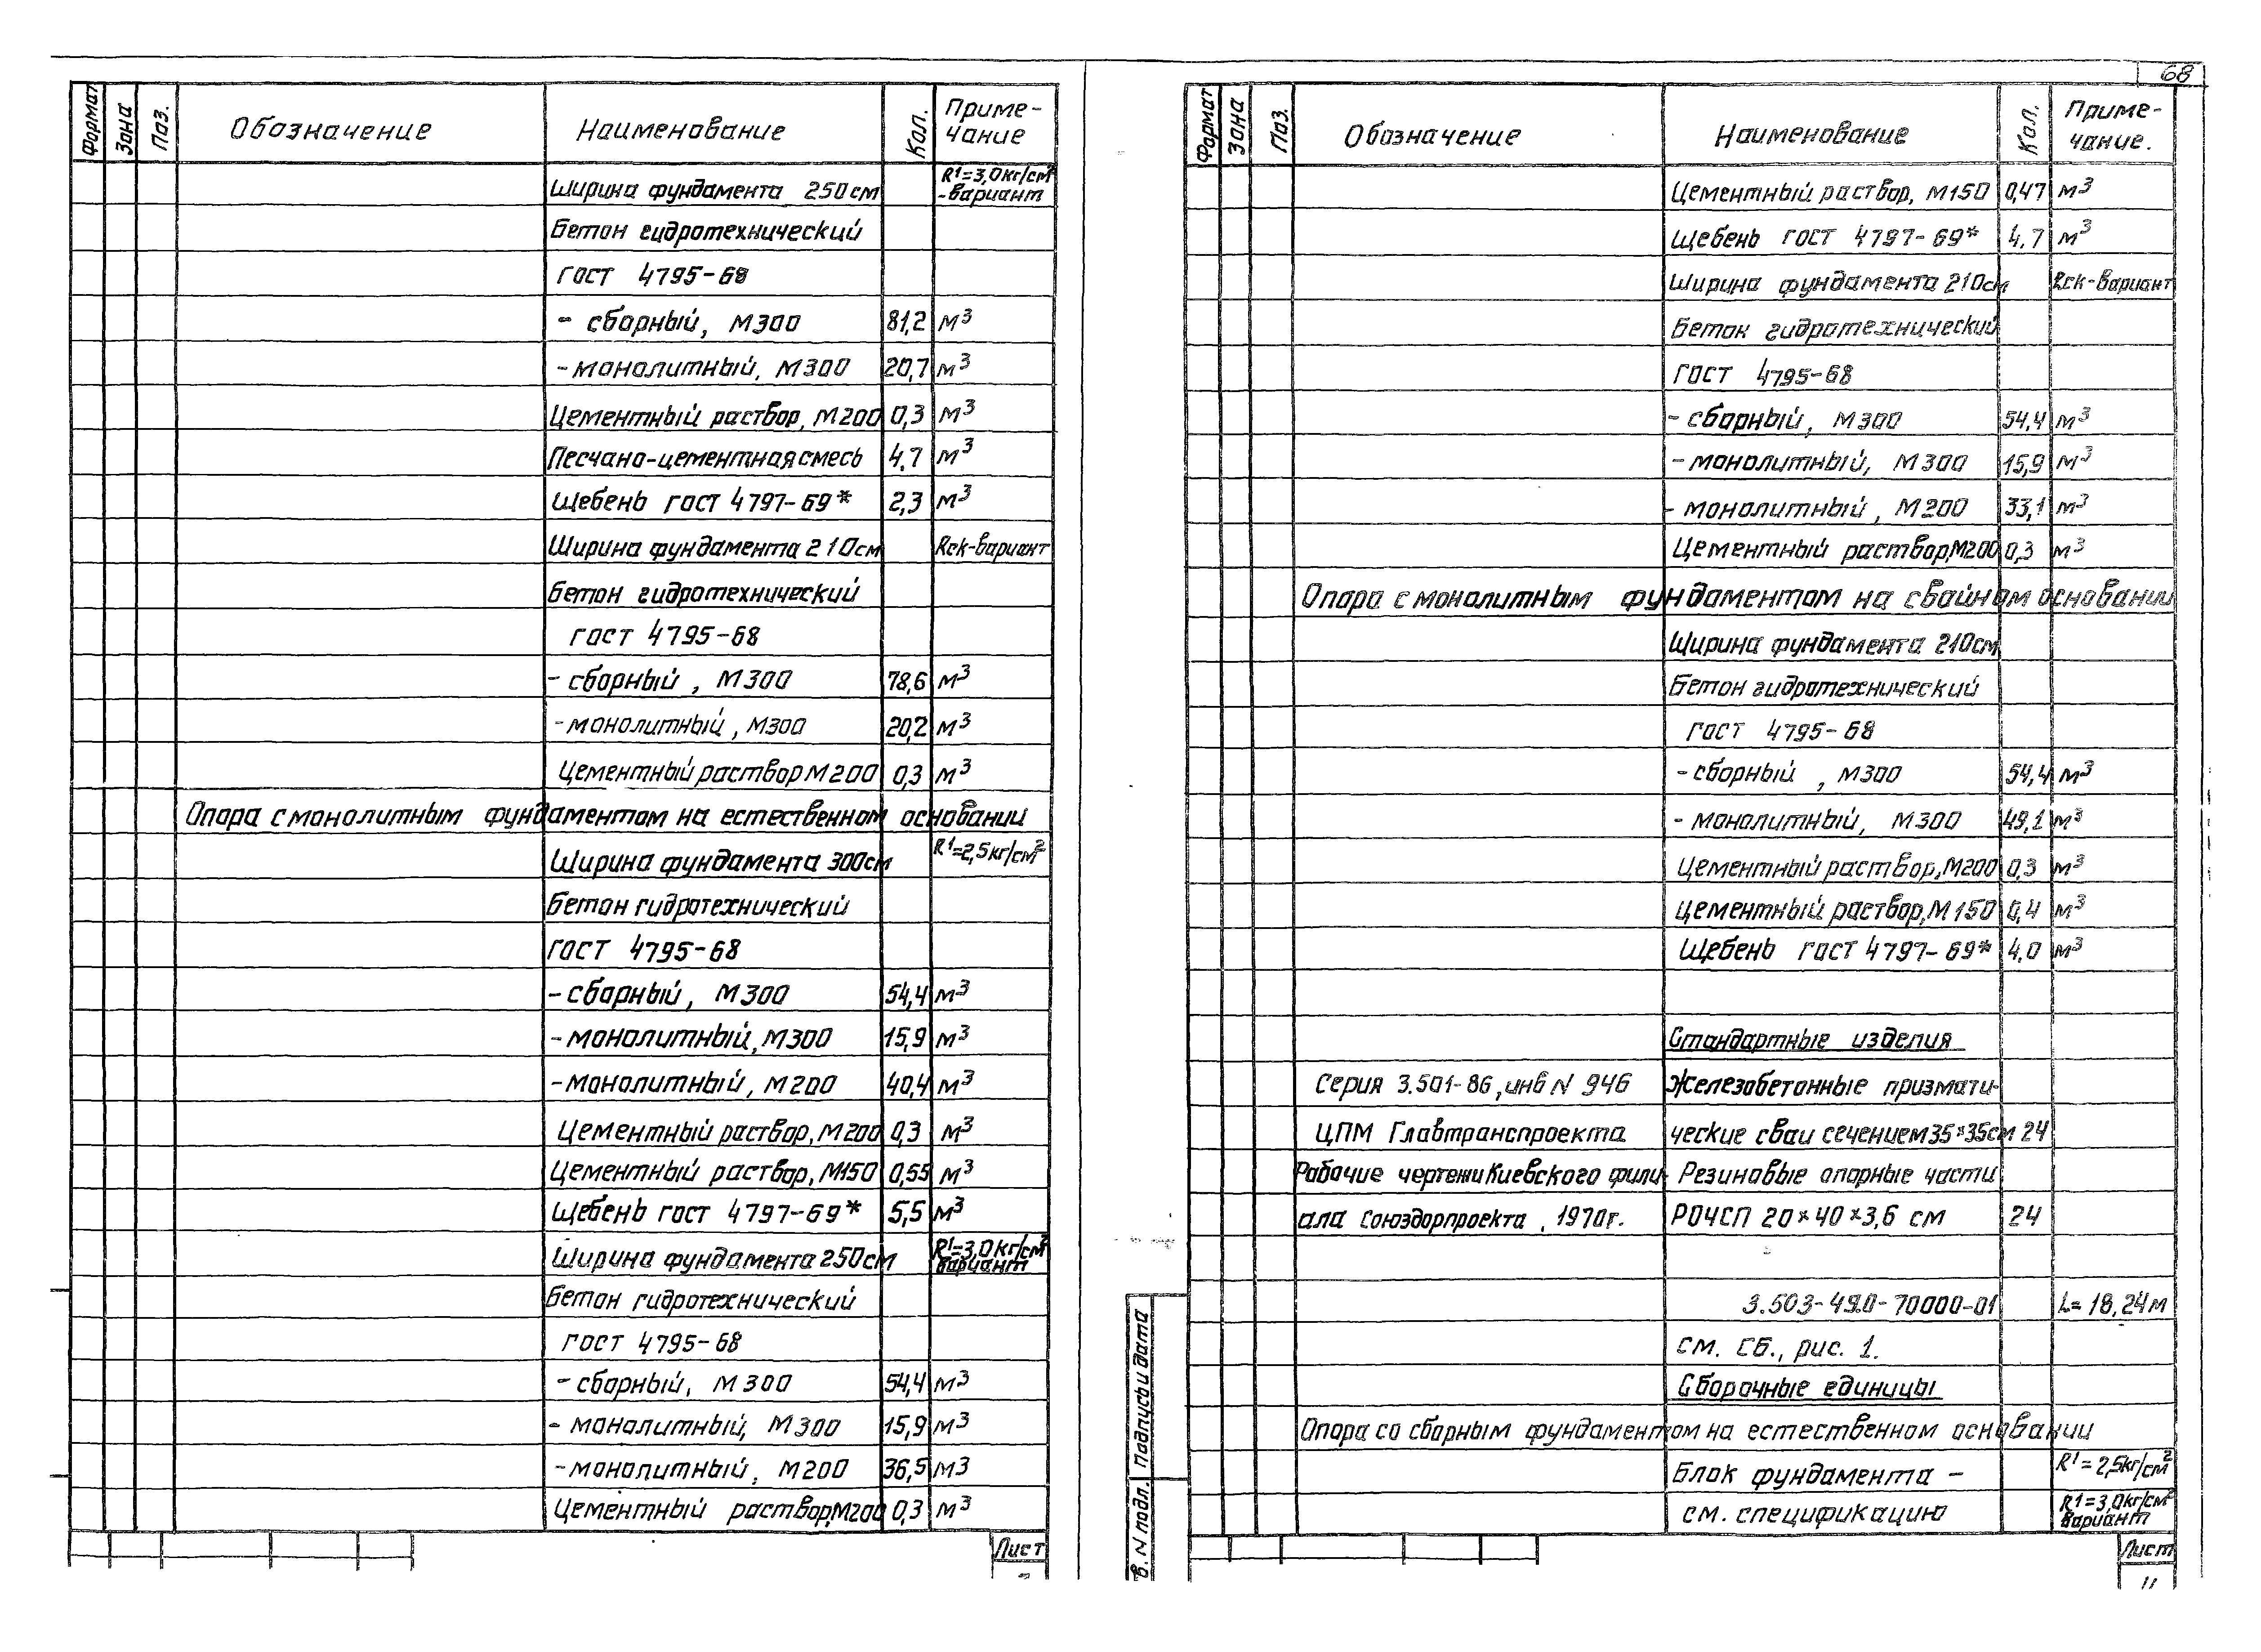 68
Формат Зона Поз. Обозначение Наименование Кол. Приме-
чание
Ширина фундамента 250см R¹=3,0кг/см²
-вариант
Бетон гидротехнический
ГОСТ 4795-68
- сборный, М300 81,2 м³
- монолитный, М300 20,7 м³
Цементный раствор, М200 0,3 м³
Песчано-цементная смесь 4,7 м³
Щебень ГОСТ 4797-69* 2,3 м³
Ширина фундамента 210см Rск-вариант
Бетон гидротехнический
ГОСТ 4795-68
- сборный, М300 78,6 м³
- монолитный, М300 20,2 м³
Цементный раствор М200 0,3 м³
Опора с монолитным фундаментом на естественном основании
Ширина фундамента 300см R¹=2,5кг/см²
Бетон гидротехнический
ГОСТ 4795-68
- сборный, М300 54,4 м³
- монолитный, М300 15,9 м³
- монолитный, М200 40,4 м³
Цементный раствор, М200 0,3 м³
Цементный раствор, М150 0,55 м³
Щебень ГОСТ 4797-69* 5,5 м³
Ширина фундамента 250см R¹=3,0кг/см²
вариант
Бетон гидротехнический
ГОСТ 4795-68
- сборный, М300 54,4 м³
- монолитный, М300 15,9 м³
- монолитный, М200 36,5 м3
Цементный раствор, М200 0,3 м³
Лист
Формат Зона Поз. Обозначение Наименование Кол. Приме-
чание.
Цементный раствор, М150 0,47 м³
Щебень ГОСТ 4797-69* 4,7 м³
Ширина фундамента 210см Rск-вариант
Бетон гидротехнический
ГОСТ 4795-68
- сборный, М300 54,4 м³
- монолитный, М300 15,9 м³
- монолитный, М200 33,1 м³
Цементный раствор, М200 0,3 м³
Опора с монолитным фундаментом на свайном основании
Ширина фундамента 210см
Бетон гидротехнический
ГОСТ 4795-68
- сборный, М300 54,4 м³
- монолитный, М300 49,1 м³
Цементный раствор, М200 0,3 м³
Цементный раствор, М150 0,4 м³
Щебень ГОСТ 4797-69* 4,0 м³
Стандартные изделия
Серия 3.501-86, инв N 946 Железобетонные призмати-
ЦПМ Главтранспроекта ческие сваи сечением 35×35см 24
Рабочие чертежи Киевского фили- Резиновые опорные части
ала Союздорпроекта, 1970г. РОЧСП 20×40×3,6 см 24
3.503-49.0-70000-01 L=18,24м
см. СБ., рис. 1.
Сборочные единицы
Опора со сборным фундаментом на естественном основании
Блок фундамента - R¹=2,5кг/см²
см. спецификацию R¹=3,0кг/см²
вариант
в. N подл. Подпись и дата
Лист
11